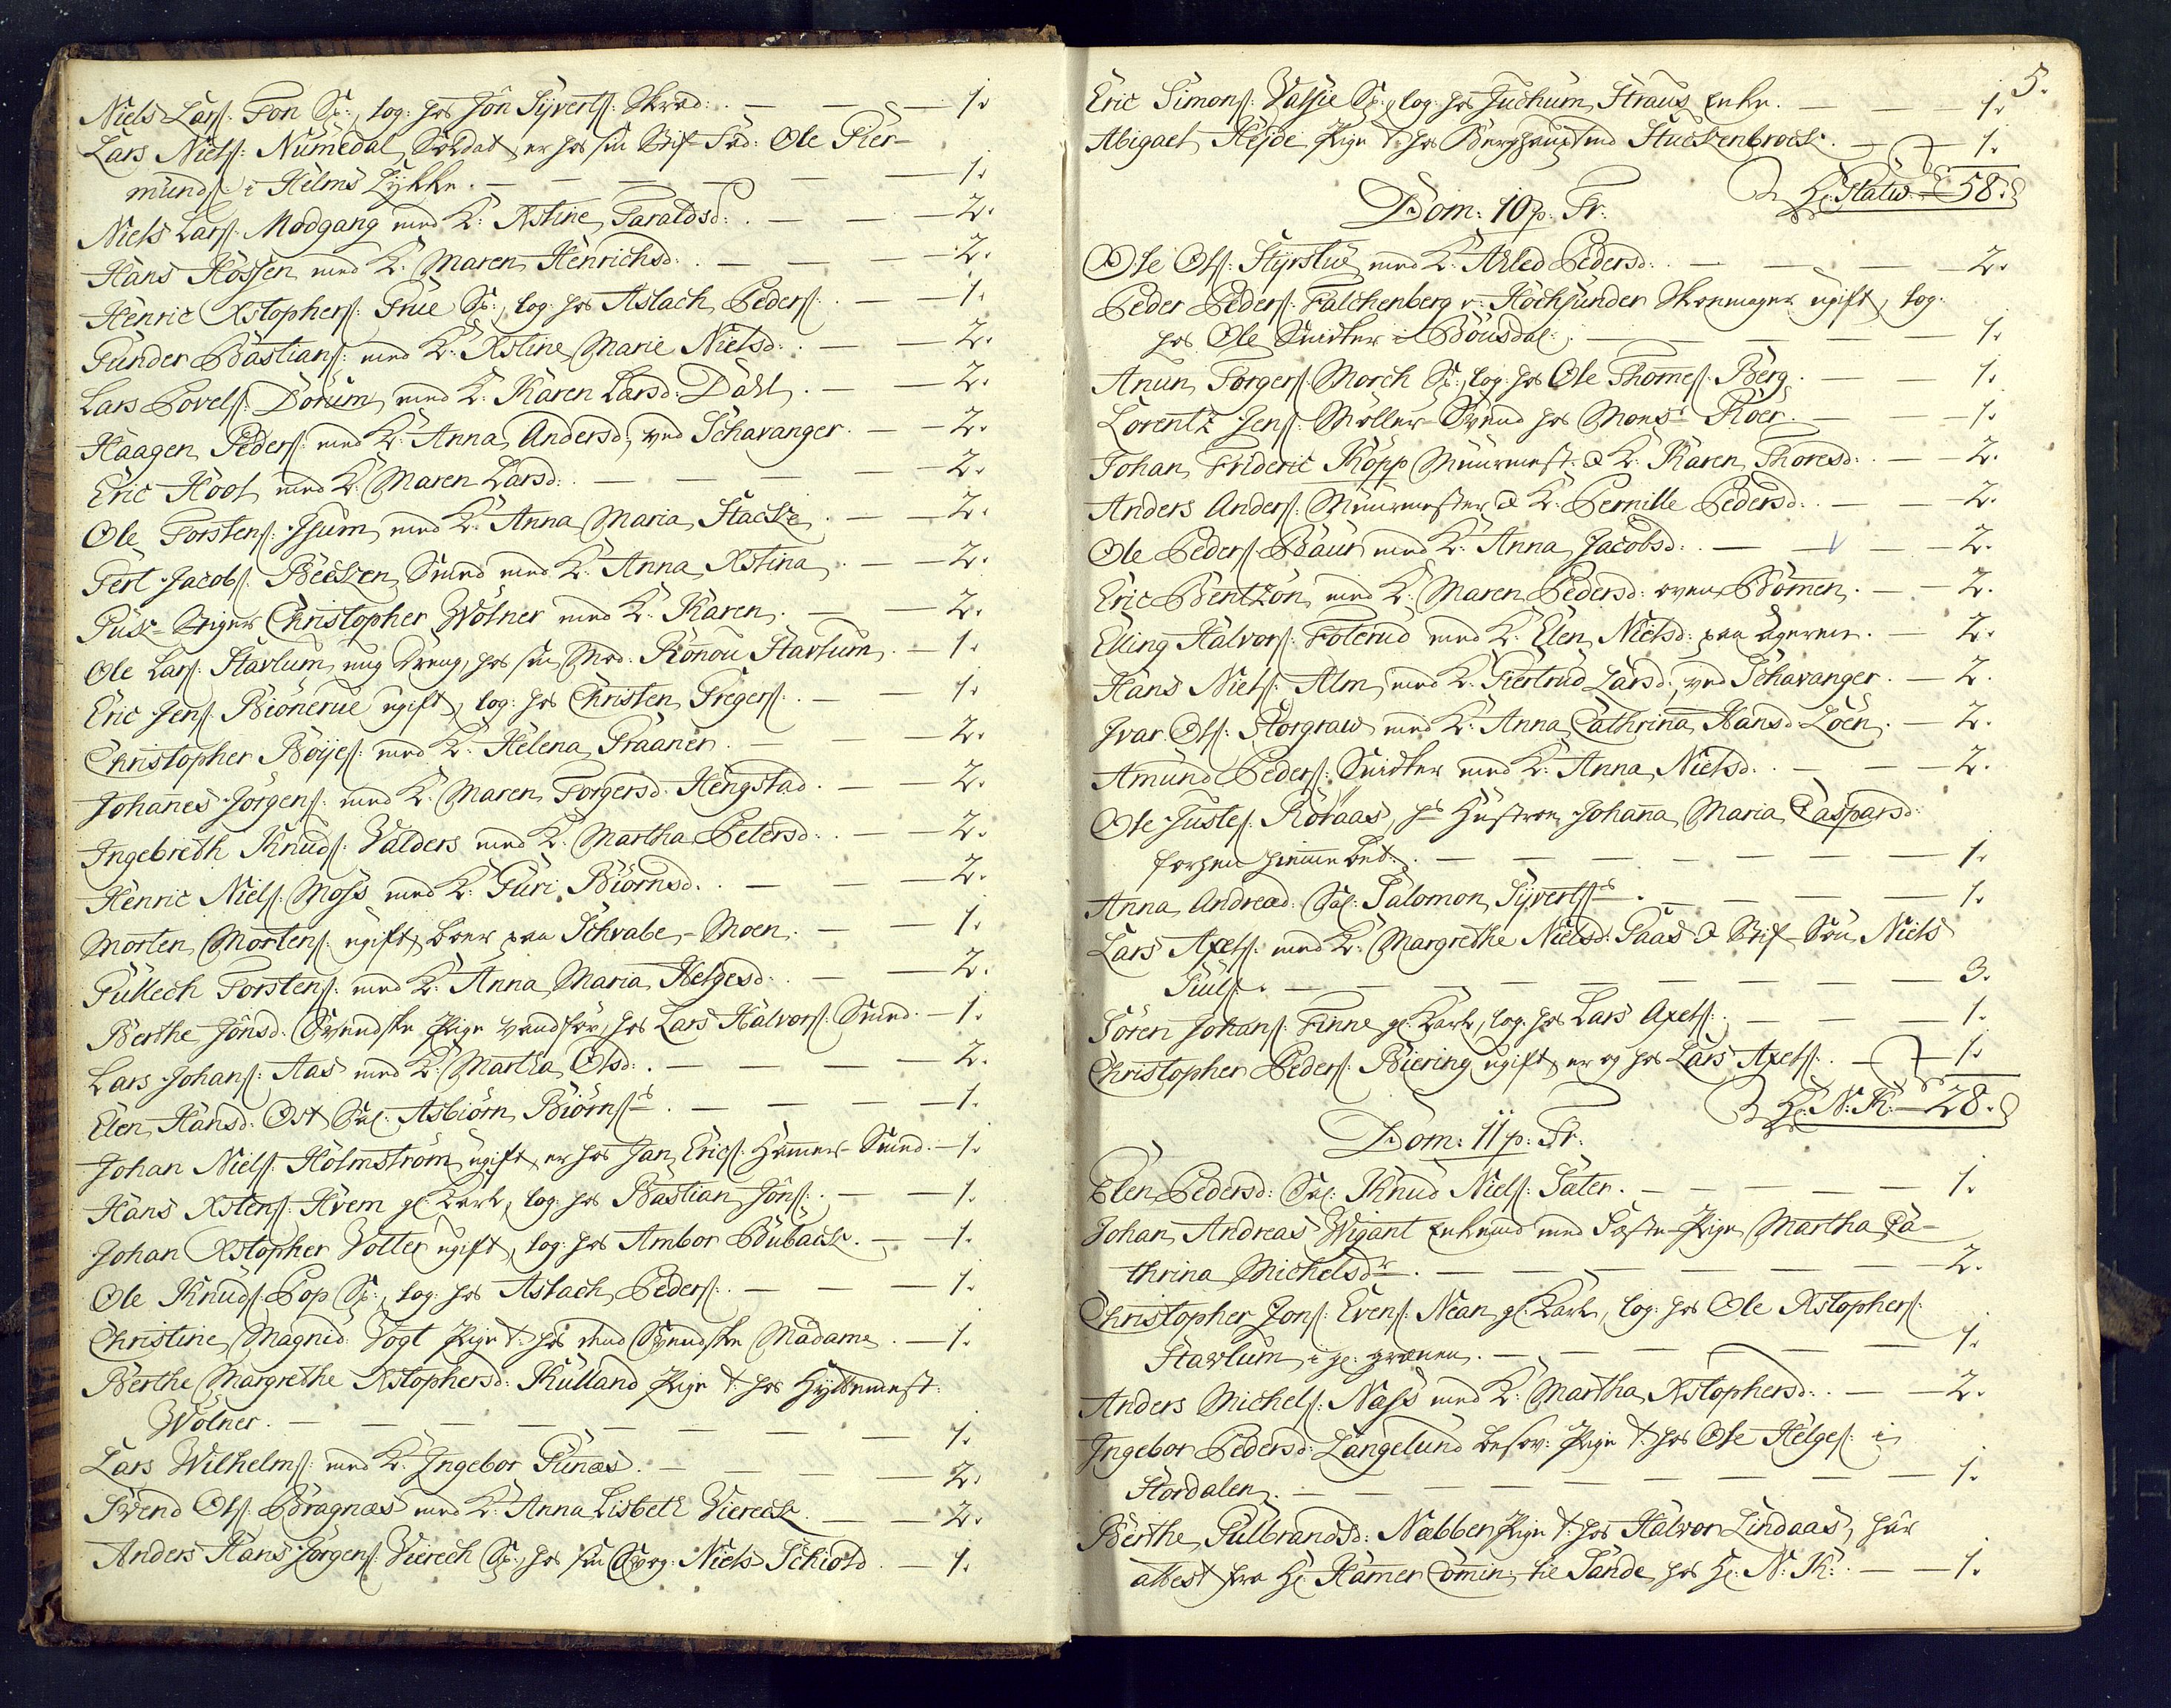 Niels Lars: Fon Sp:, log: hos Jon Syverts: Skræd: . — — — 1.
Lars Niels: Numedal, Soldat, er hos sin Stif-Fad: Ole Pier-
munds: i Helms Lykke. — — — — — 1.
Niels Lars: Modgang med K: Xstine Taraldsd: . — — — 2.
Hans Hossen med K: Maren Henrichsd: . — — — 2.
Henric Xstophers: True Sp:, log: hos Aslach Peders: . — — 1.
Gunder Bastians: med K: Xstine Marie Nielsd: . — — 2.
Lars Povels: Dorum med K: Karen Larsd: Dahl . — — 2.
Haagen Peders: med K: Anna Andersd: ved Schavanger . — — 2.
Eric Hoot med K: Maren Larsd: . — — — — 2.
Ole Torstens: Isum med K: Anna Maria Hacke . — — 2.
Pert Jacobs: Becken Smed med K: Anna Xstina . — — 2.
Puk-Stiger Christopher Wölner med K: Karen . — — 2.
Ole Lars: Stavlum, ung Dreng, hos sin Mod: Ronnou Stavlum . — 1.
Eric Jens: Bionerue ugift, log: hos Christen Gregers: . — — 1.
Christopher Boijes: med K: Helena Fraaner . — — — 2.
Johanes Jorgens: med K: Maren Torgersd: Hengstad . — — 2.
Ingebreth Knuds: Valders med K: Martha Petersd: . — — 2.
Henric Niels: Moss med K: Guri Biornsd: . — — — 2.
Morten Mortens: ugift, boer paa Schrabe-Moen . — — 1.
Gullech Torstens: med K: Anna Maria Helgesd: . — — 2.
Berthe Jonsd: Svendske Pige vandfør, hos Lars Halvors: Smed . — 1.
Lars Johans: Aas med K: Martha Olsd: . — — — — 2.
Elen Hansd: Ost Sal: Asbiörn Biörns: . — — — — 1.
Johan Niels: Holmström ugift, er hos Jan Erics: Hammer-Smed . — 1.
Hans Xstens: Hvem gl: Karl, log: hos Bastian Jons: . — — 1.
Johan Xstopher Volter ugift, log: hos Ambor Bubach . — — 1.
Ole Knuds: Pop Sp:, log: hos Aslach Peders: . — — — 1.
Christine Magnid: Vogt Pige t: hos den Svendske Madame . — 1.
Berthe Margrethe Xstophersd: Kulland Pige t: hos Hyttemest:
Wölner. — — — — — — — 1.
Lars Wilhelms: med K: Ingebor Gunæs . — — — — 2.
Svend Ols: Bragnæs med K: Anna Lisbeth Viereck . — — 2.
Anders Hans Jorgens: Viereck Sp:, hos sin Svog: Niels Schiold . — 1.
5.
Eric Simons: Vassie Sp:, log: hos Juchum Straus Enke. — — — 1.
Abigael Hejde Pige t: hos Berghauptmd Stuckenbrock . — 1.
H: Statw: — 58.
Dom: 10 p: Tr:
Ole Ols: Styrstue med K: Arled Pedersd: . — — — 2.
Peder Peders: Falchenberg v: Hochsunder Skomager ugift, log:
hos Ole Snidker i Bousdal: . — — — — — 1.
Anun Torgers: Morch Sp:, log: hos Ole Thomes: Berg . — — 1.
Lorentz Jens: Møller-Svend hos Mons: Roer . — — — 1.
Johan Frideric Kopp Muurmest: & K: Karen Thoresd: . — — 2.
Anders Anders: Muurmester & K: Pernille Pedersd: . — — 2.
Ole Peders: Baur med K: Anna Jacobsd: . — — — 2.
Eric Bentzon med K: Maren Pedersd: oven Bommen . — 2.
Elling Halvors: Foterud med K: Elen Nielsd: paa Ageren . — 2.
Hans Niels: Alm med K: Giertrud Larsd: ved Schavanger . — 2.
Ivar Ols: Storgraw med K: Anna Cathrina Hansd: Loen . — 2.
Amund Peders: Snidker med K: Anna Nielsd: . — — — 2.
Ole Justes: Röraas, hs Hustroe Johana Maria Caspersd:
forhen hiemme bet: . — — — — — — 1.
Anna Andread: Sal: Salomon Syverts: . — — — — 1.
Lars Axels: med K: Margrethe Nielsd: Saas & Stif-Søn Niels
Juuls: . — — — — — — — — 3.
Sören Johans: Finne gl: Karl, log: hos Lars Axels: . — — 1.
Christopher Peders: Biering ugift, er og hos Lars Axels: . — 1.
H: N: K: — 28.
Dom: 11 p: Tr:
Elen Pedersd: Sal: Knud Niels: Sater . — — — — 1.
Johan Andreas Wigant Enkemd med Fæste-Pige Martha Ca-
thrina Michelsdr . — — — — — — 2.
Christopher Jons: Evens: Nean gl: Karl, log: hos Ole Xstophers:
Stavlum, i gl: grænen. — — — — — 1.
Anders Michels: Nass med K: Martha Xstophersd: . — — 2.
Ingebor Pedersd: Langelund besov: Pige t: hos Ole Helges: i
Stordalen . — — — — — — — 1.
Berthe Gulbrandsd: Nabben Pige t: hos Halvor Lindaas, har
attest fra H: Hamer Comin: til Sande, hos H: N: K: . — — 1.